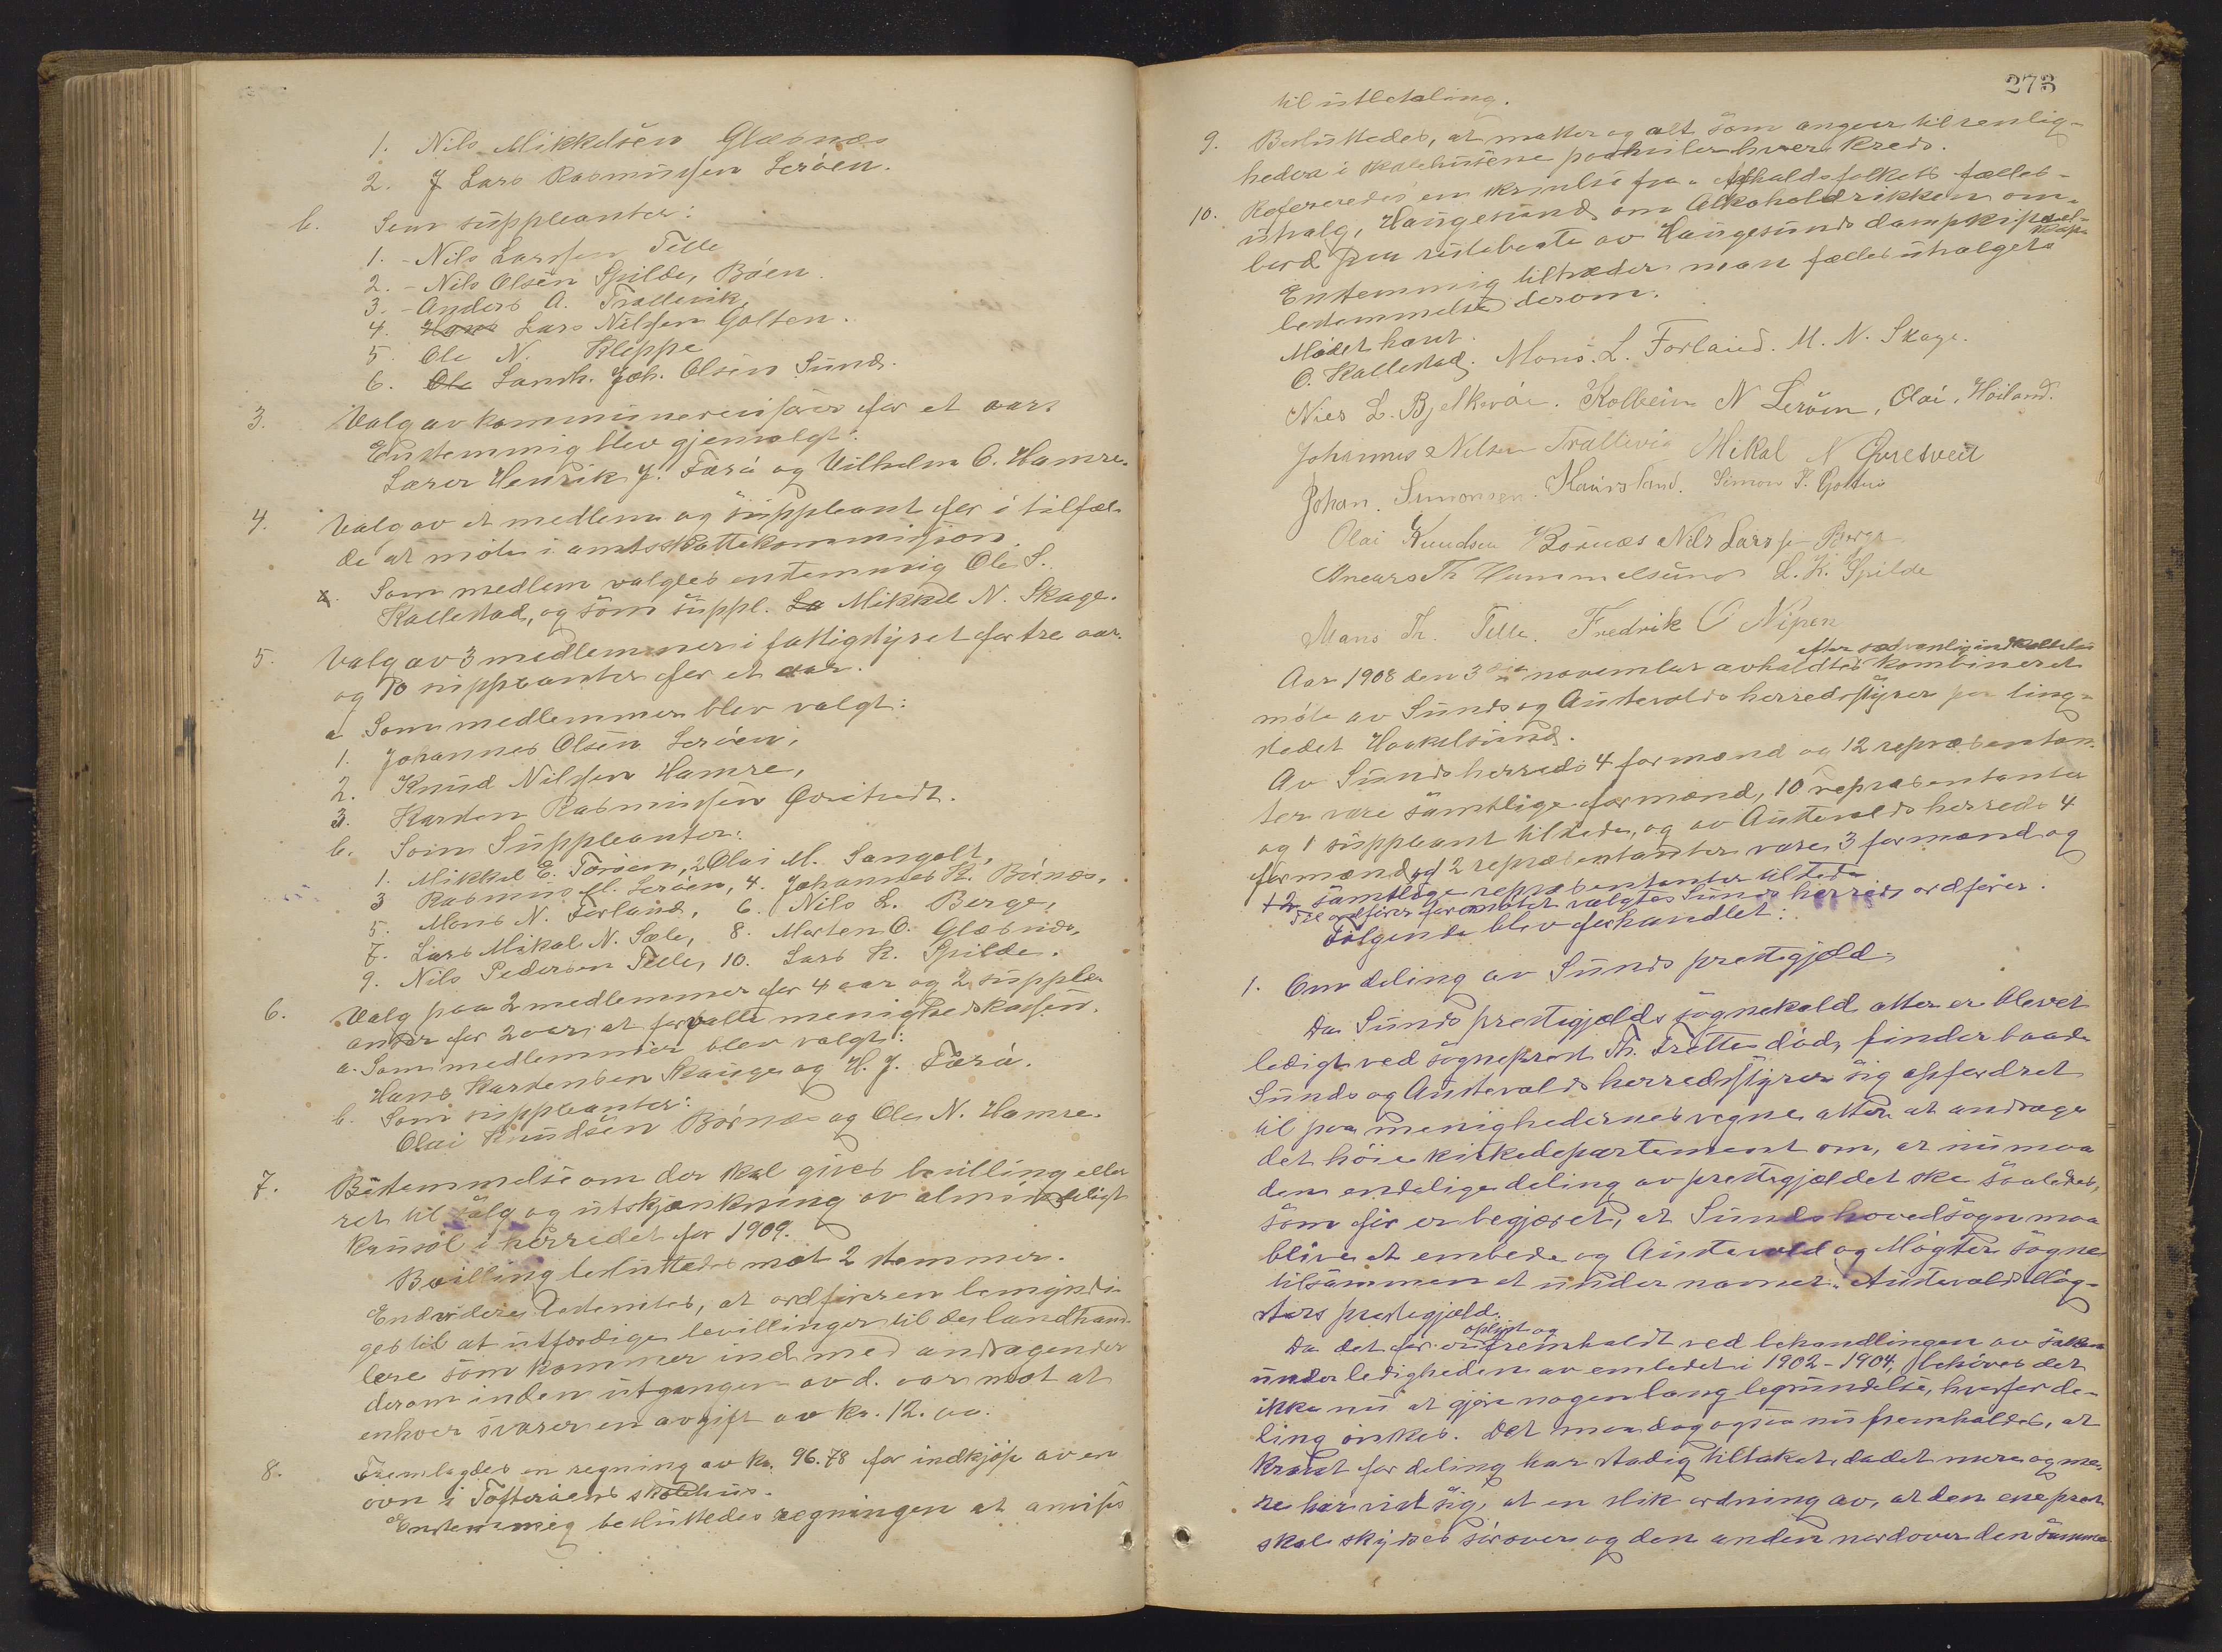 1. Nils Mikkelsen Glæsnæs
2. J Lars Rasmussen Lerøen.
b. Som suppleanter:
1. - Nils Larssen Telle
2. - Nils Olsen Spilde, Bøen.
3. - Anders A. Trællevik,
4. Hans Lars Nilssen Golten.
5. Ole N. Kleppe
6. Ole Landh. Joh. Olsen Sund.
3. Valg av kommunerevisorer for et aar.
Enstemmig blev gjenvalgt:
Lærer Henrik J. Færø og Vilhelm O. Hamre.
4. Valg av et medlem og suppleant for i tilfæl-
de at møte i amtsskattekommission.
a. Som medlem valgtes enstemmig Ole S.
Kallestad, og som suppl. La Mikkel N. Skage.
5. Valg av 3 medlemmer i fattigstyret for tre aar.
og 10 suppleanter for et aar.
a Som medlemmer blev valgt:
1. Johannes Olsen Lerøen,
2. Knud Nilssen Hamre,
3. Karsten Rasmussen Qvistvedt.
b. Som Suppleanter:
1. Mikkel E. Torøen, 2 Olai M. Sangolt,
3 Rasmus M. Lerøen, 4. Johannes K. Børnæs,
5. Mons N. Forland, 6. Nils L. Berge,
7. Lars Mikal N. Sæle, 8. Morten O. Glæsnæs,
9. Nils Pedersen Telle, 10. Lars K. Spilde.
6. Valg paa 2 medlemmer for 4 aar og 2 supple-
anter for 2 aar, at forvalte menighedskassen.
a. Som medlemmer blev valgt:
Hans Karstensen Skauge og H. J. Færø.
b. Som suppleanter:
Olai Knudsen Børnæs og Ole N. Hamre.
7. Bestemmelse om der skal gives bevilling eller
ret til salg og utskjænkning av almindeligt
krusøl i herredet for 1909.
Bevilling besluttedes mot 2 stemmer.
Endvidere bestemtes, at ordføreren bemyndi-
ges til at utfærdige bevillinger til de landhand-
lere som kommer ind med andragender
derom inden utgangen av d. aar mot at
enhver svarer en avgift av kr. 12.00.
8. Fremlagdes en regning av kr. 96.78 for indkjøp av en
ovn i Tofterøens skolehus.
Enstemmig besluttedes regningen at anvises
273
til utbetaling.
9. Besluttedes, at matter og alt som angaar til renlig-
heden i skolehusene paahviler hver kreds.
10. Refereredes en skrivelse fra "Afholdsfolkets fælles-
utvalg, Haugesund" om Alkoholdrikken om-
bord paa rutebaate av Haugesunds dampskipssel-
skap.
Enstemmig tiltræder man fællesutvalgets
bestemmelse derom.
Mødet hævt.
O. Kallestad. Mons. L. Forland. M. N. Skage.
Nils L. Bjelkerøe. Kolbein N Lerøen, Olai. Høiland.
Johannes Nilsen Trallevig Mikal N Qvistved
Johan. Simonsen. Kausland. Simon J. Golten
Olai Knudsen Børnæs Nils Larssen Berge
Anders Th Hummelsund L. K. Spilde
Mons Th. Telle. Fredrik O Nipen
efter sædvanlig indkaldelse
Aar 1908 den 3die november avholdtes kombineret
møte av Sunds og Austevolds herredsstyrer paa ting-
stedet Haakelsund.
Av Sunds herreds 4 formænd og 12 repræsentan-
ter vare samtlige formænd, 10 repræsentanter
og 1 suppleant tilstede, og av Austevolds herreds 4
formænd og 12 repræsentanter vare 3 formænd og
12 samtlige repræsentanter tilstede.
Til ordfører for møtet valgtes Sunds herreds ordfører.
Følgende blev forhandlet:
1. Om deling av Sunds prestegjæld.
Da Sunds prestegjælds sognekald atter er blevet
ledigt ved sogneprest Th. Frettes død, finder baade
Sunds og Austevolds herredsstyrer sig opfordret
til paa menighedernes vegne atter at andrage
det høie kirkedepartement om, at nu maa
den endelige deling av prestegjældet ske saaledes,
som før er begjæret, at Sunds hovedsogn maa
blive et embede og Austevold og Møgster sogne
tilsammen et under navnet "Austevold Møg-
sters prestegjæld".
Da det før er oplyst og fremholdt ved behandlingen av saken
under ledigheden av embedet i 1902-1904, behøves det
ikke nu at gjøre nogen lang begrundelse, hvorfor de-
ling ønskes. Det maa dog ogsaa nu fremholdes, at
kravet for deling har stadig tiltaket, da det mere og me-
re har vist sig, at en slik ordning av, at den ene prest
skal skydses sørover og den anden nordover den samme